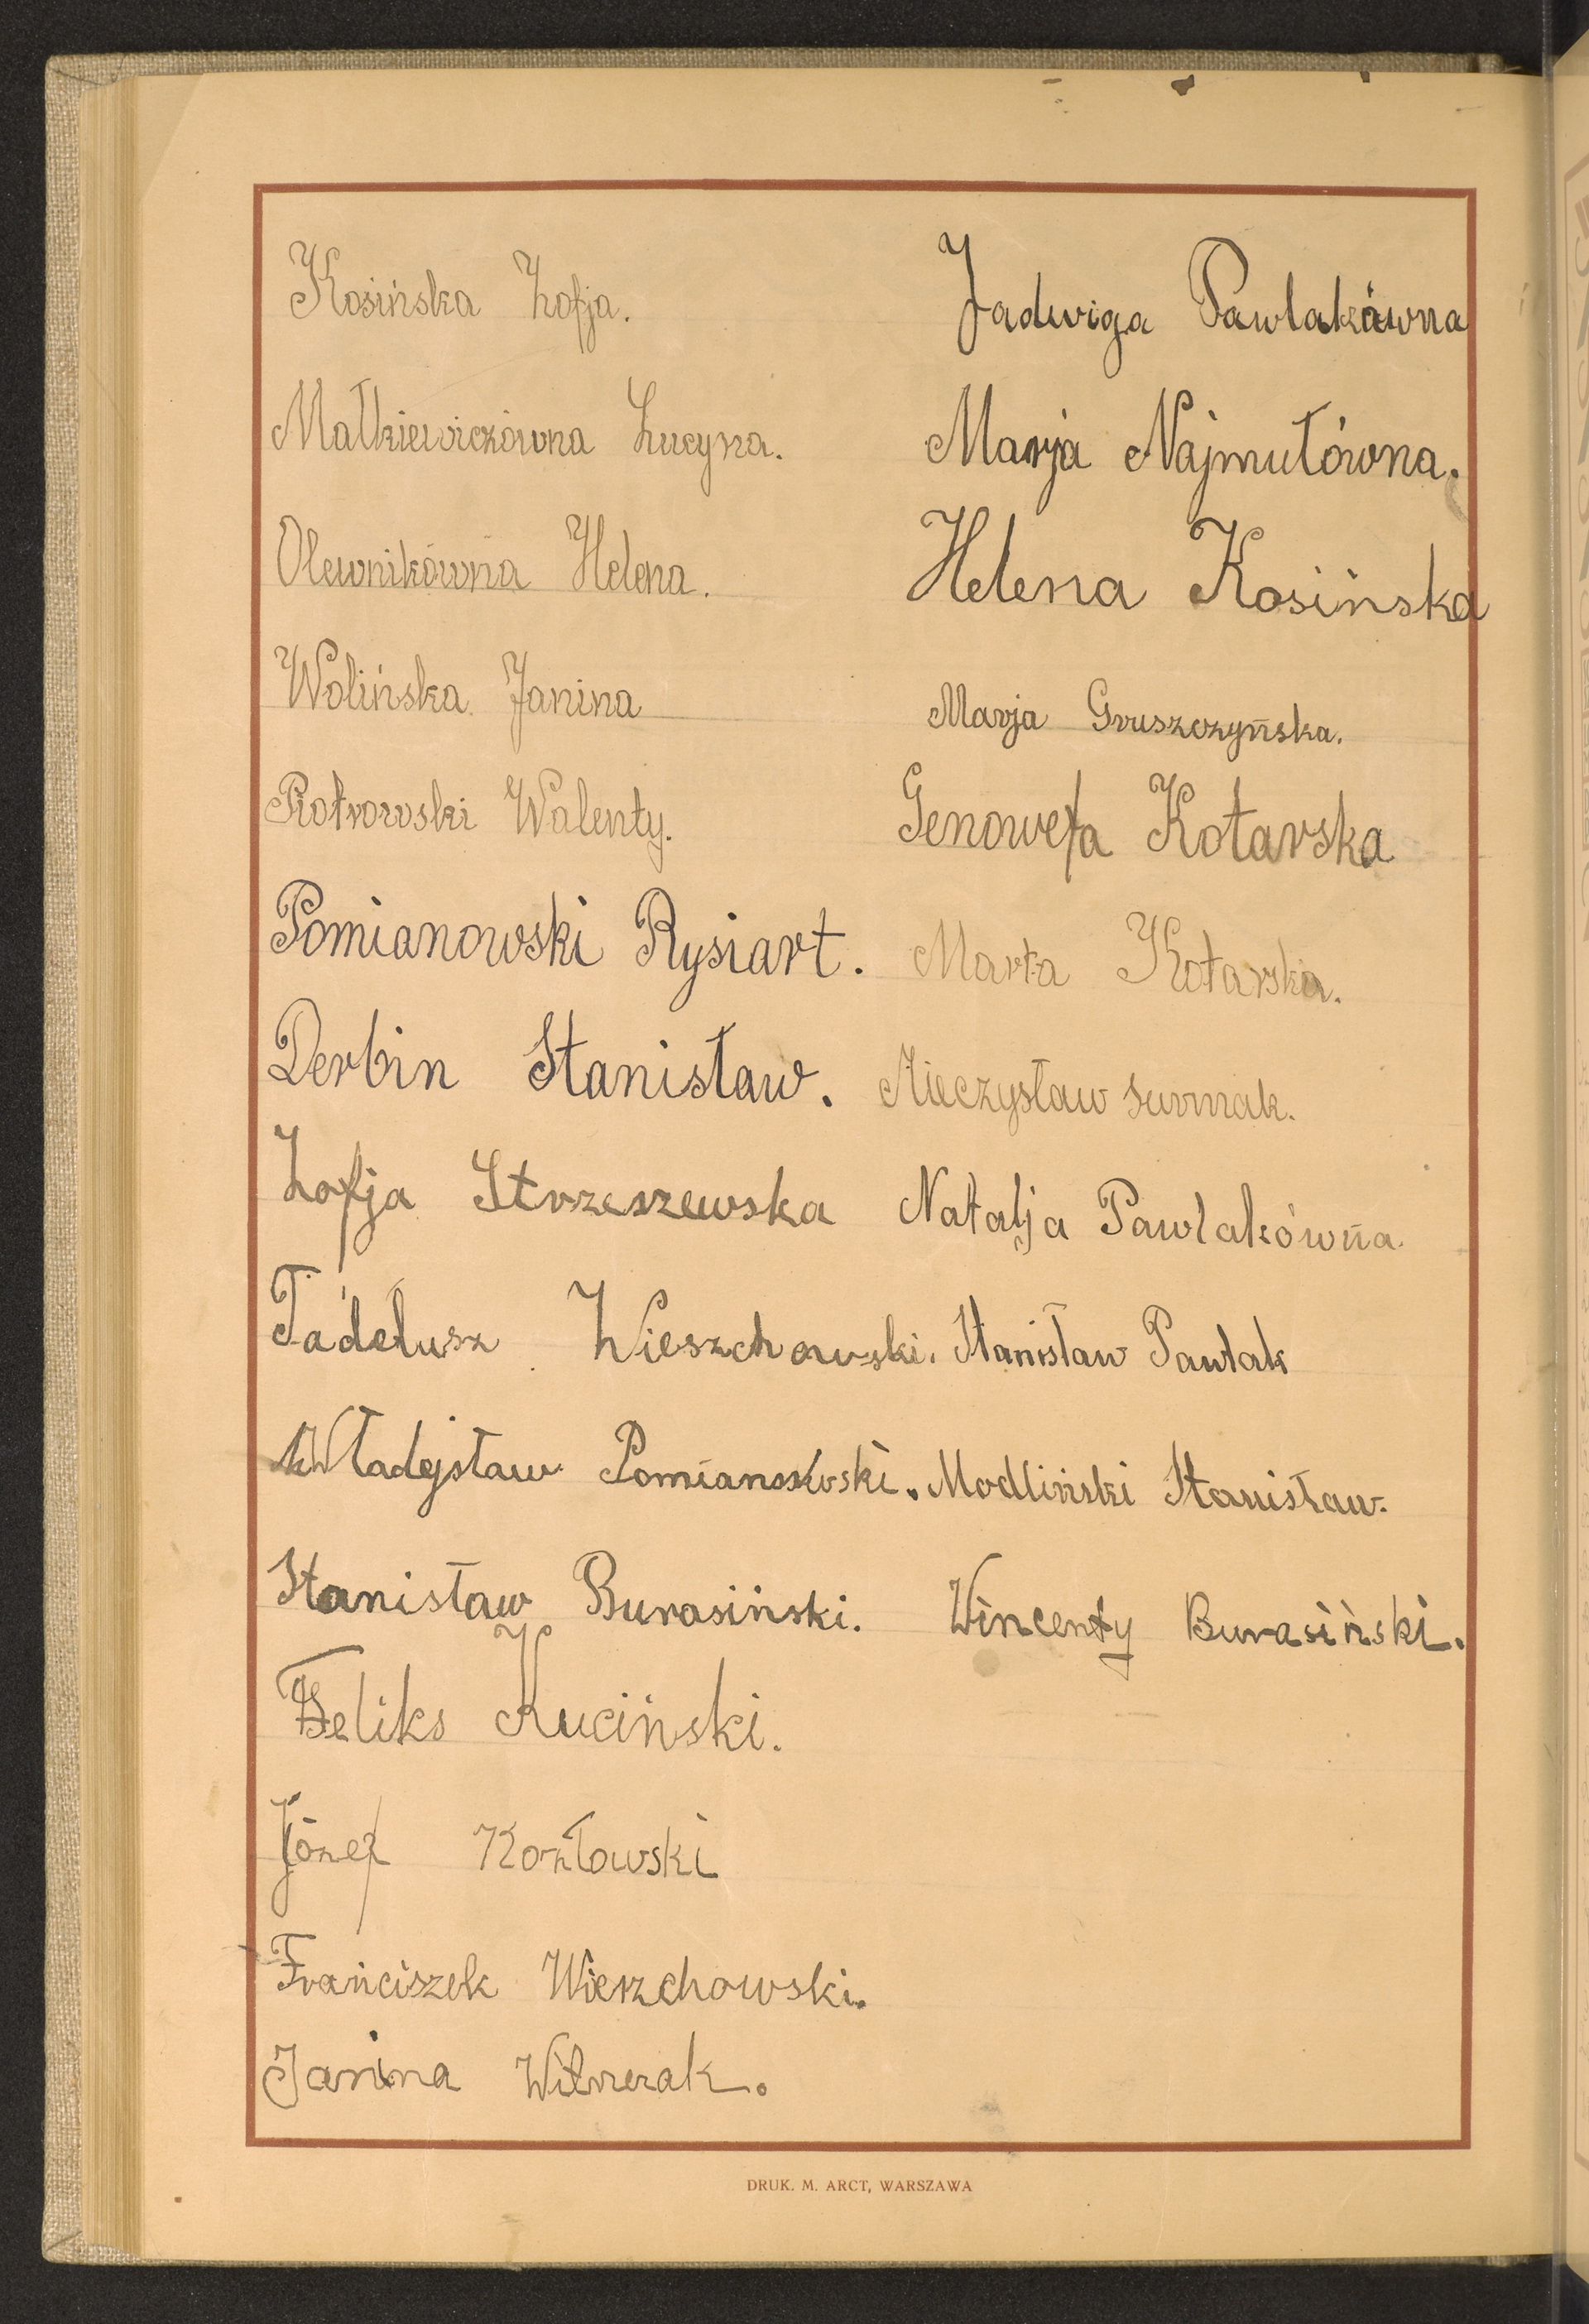 Kosińska Zofja.
Małkiewiczówna Lucyna.
Olewnikówna Helena.
Wolińska Janina
Piotrowski Walenty.
Pomianowski Rysiart.
Derbin Stanisław.
Zofja Strzeszewska
Tadeusz Wieszchowski.
Władysław Pomianowski.
Stanisław Burasiński.
Feliks Kuciński.
Józef Kozłowski
Franciszek Wierzchowski.
Janina
Jadwiga Pawlakówna
Marja Najmułówna.
Helena Kosińska
Marja Gruszczyńska.
Genowefa Kotarska
Marta Kotarska.
Mieczysław Surmak.
Natalja Pawlakówna.
Stanisław Pawlak
Modliński Stanisław.
Wincenty Burasiński.
DRUK. M. ARCT, WARSZAWA